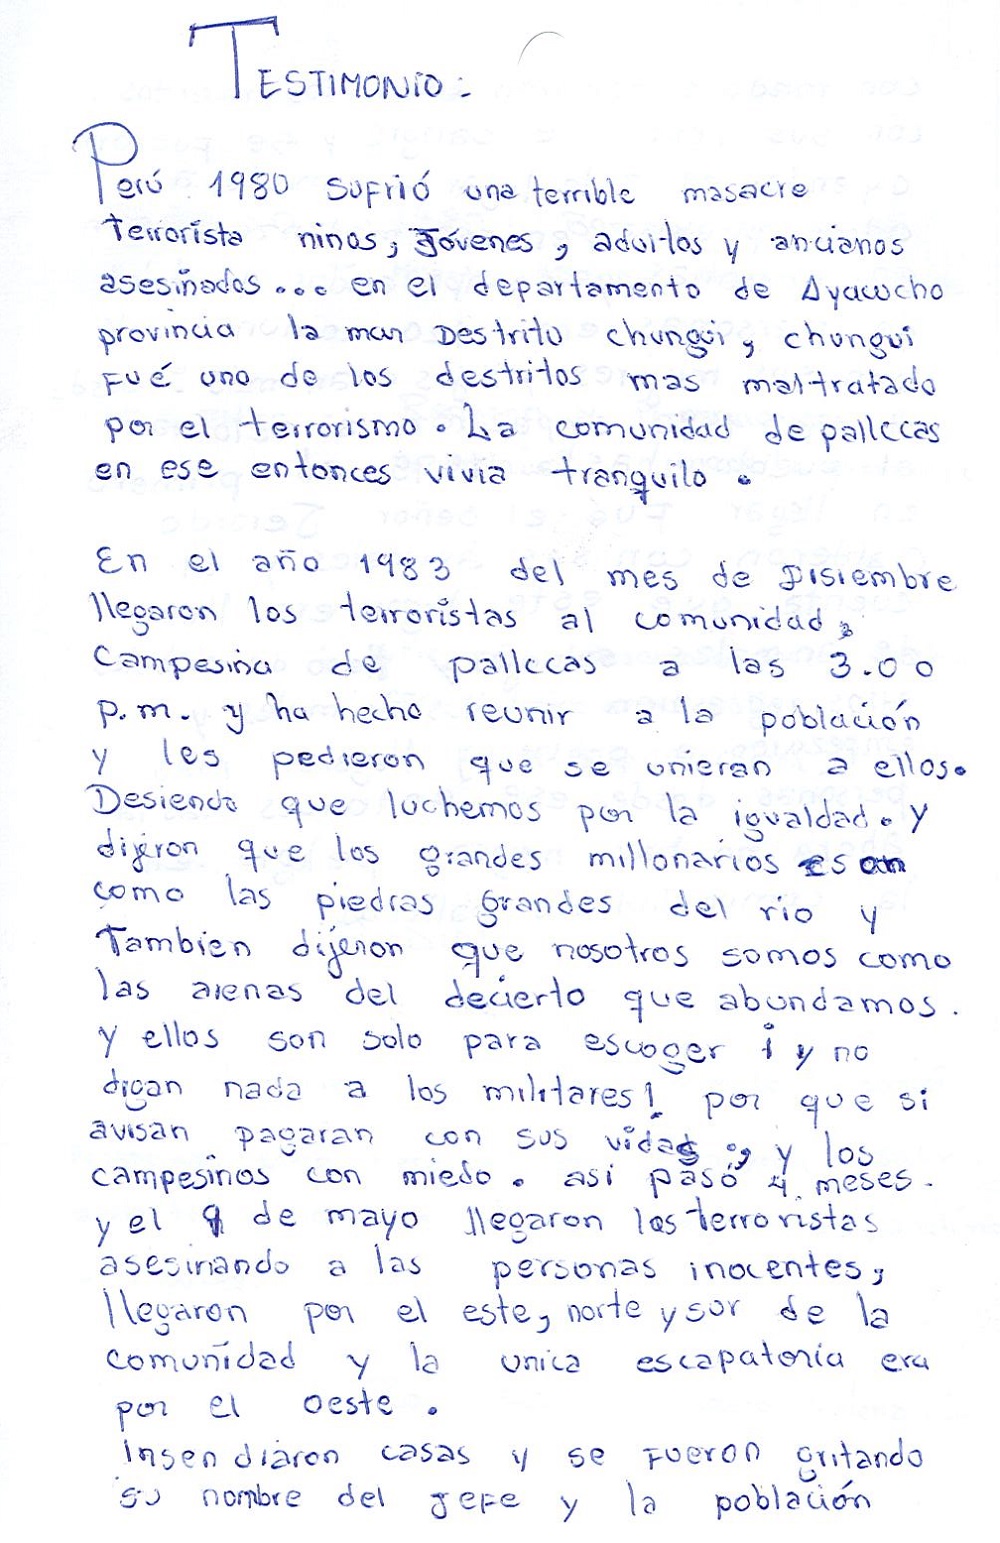 TESTIMONIO:
Perú 1980 sufrió una terrible masacre
terrorista ninos, Jóvenes, adultos y ancianos
asesinados... en el departamento de Ayacucho
provincia la mar Destrito chungui, chungui
Fué uno de los destritos mas maltratado
por el terrorismo. La comunidad de pallccas
en ese entonces vivia tranquilo.
En el año 1983 del mes de Disiembre
llegaron los terroristas al comunidad,
Campesina de pallccas a las 3.00
p.m. y ha hecho reunir a la población
y les pedieron que se unieran a ellos.
Desiendo que luchemos por la igualdad. y
dijeron que los grandes millonarios son
como las piedras grandes del rio y
Tambien dijeron que nosotros somos como
las arenas del decierto que abundamos.
y ellos son solo para escoger ¡ y no
digan nada a los militares! por que si
avisan pagaran con sus vidas., y los
campesinos con miedo. asi pasó 4 meses.
y el 9 de mayo llegaron los terroristas
asesinando a las personas inocentes,
llegaron por el este, norte y sur de la
comunidad y la unica escapatoria era
por el oeste.
Insendiaron casas y se Fueron gritando
su nombre del jefe y la población